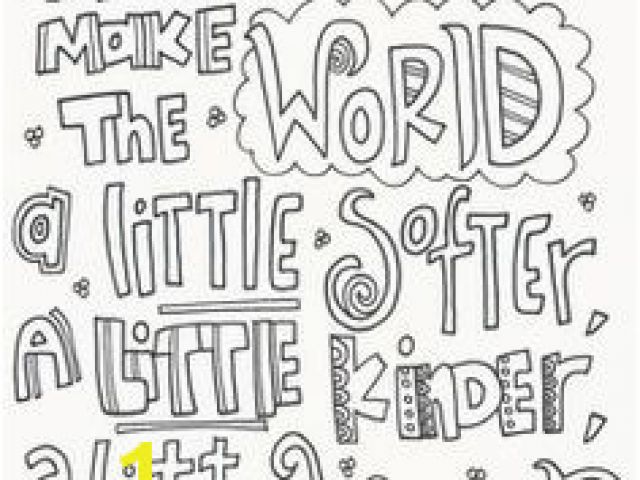 MAKE
THE WORLD
a little Softer,
A little kinder,